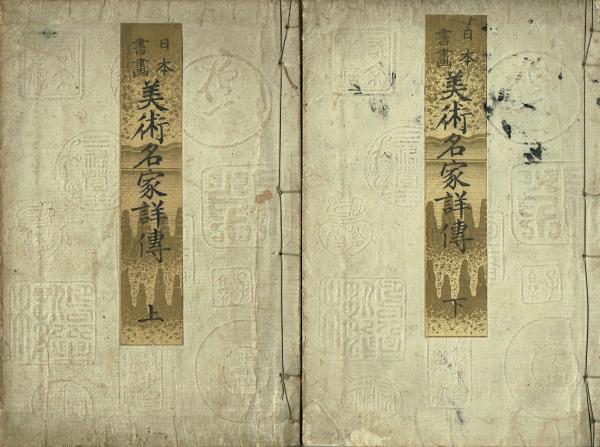 日本
書畫
美術名家詳傳
上
日本
書畫
美術名家詳傳
下